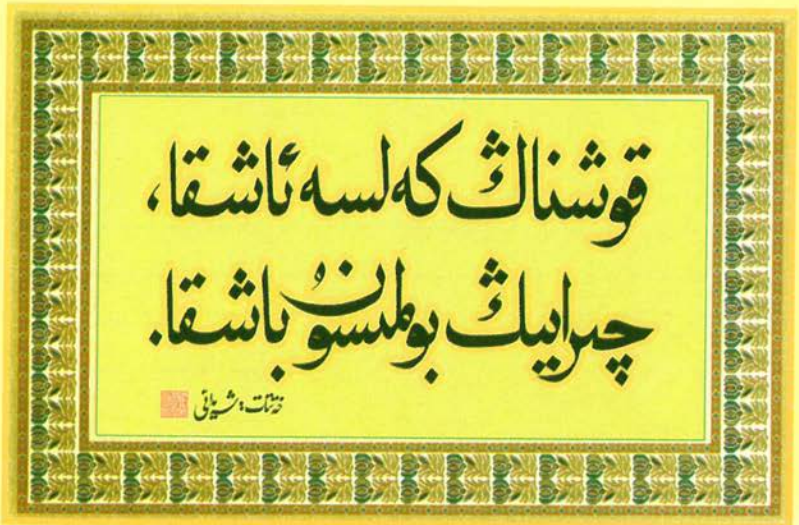 قوشناڭ كەلسە ئاشقا،
چىرايىڭ بولمىسۇن باشقا.
خەتتات: